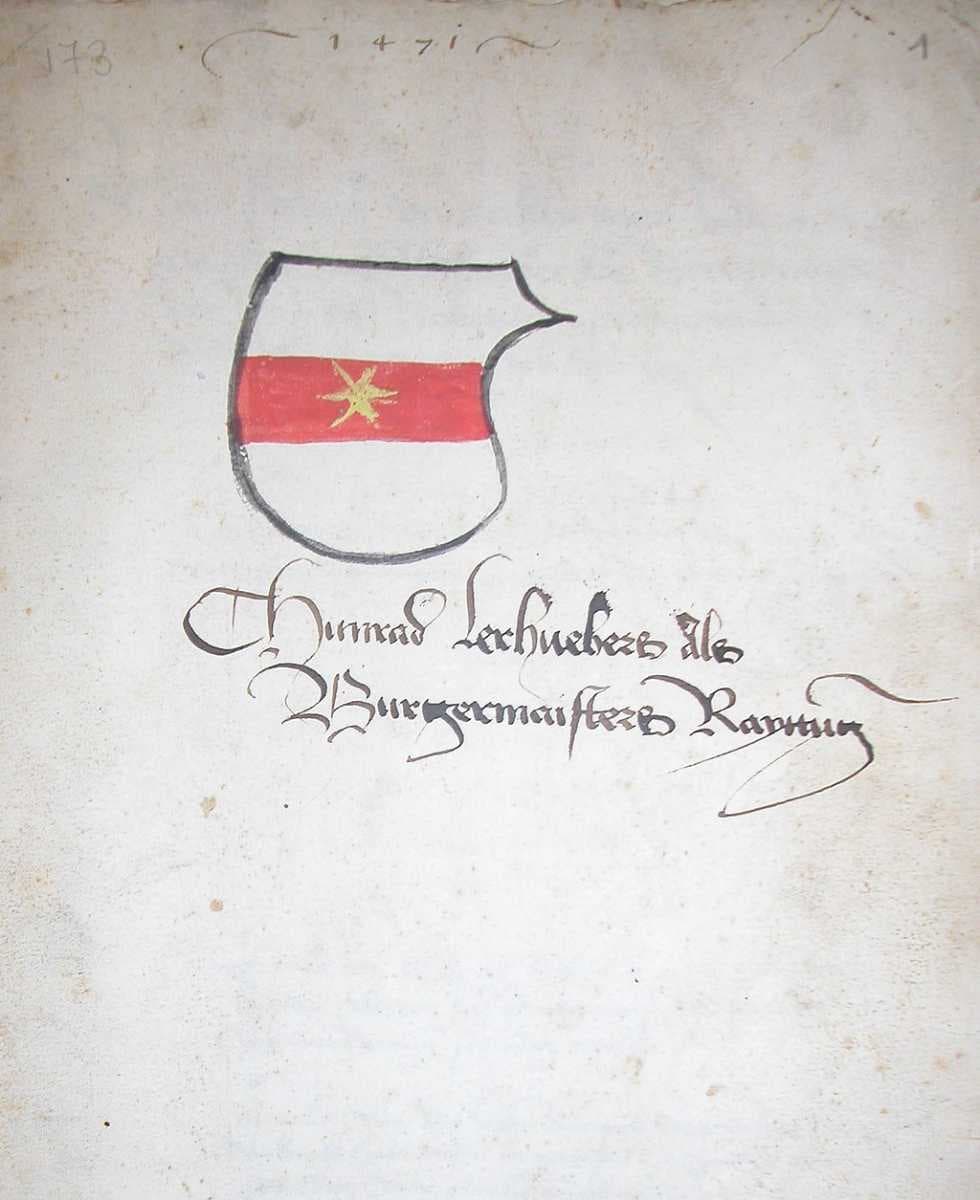 173 1471 1
Chunrad Lerhuebers als
Burgermaisters Rayttung